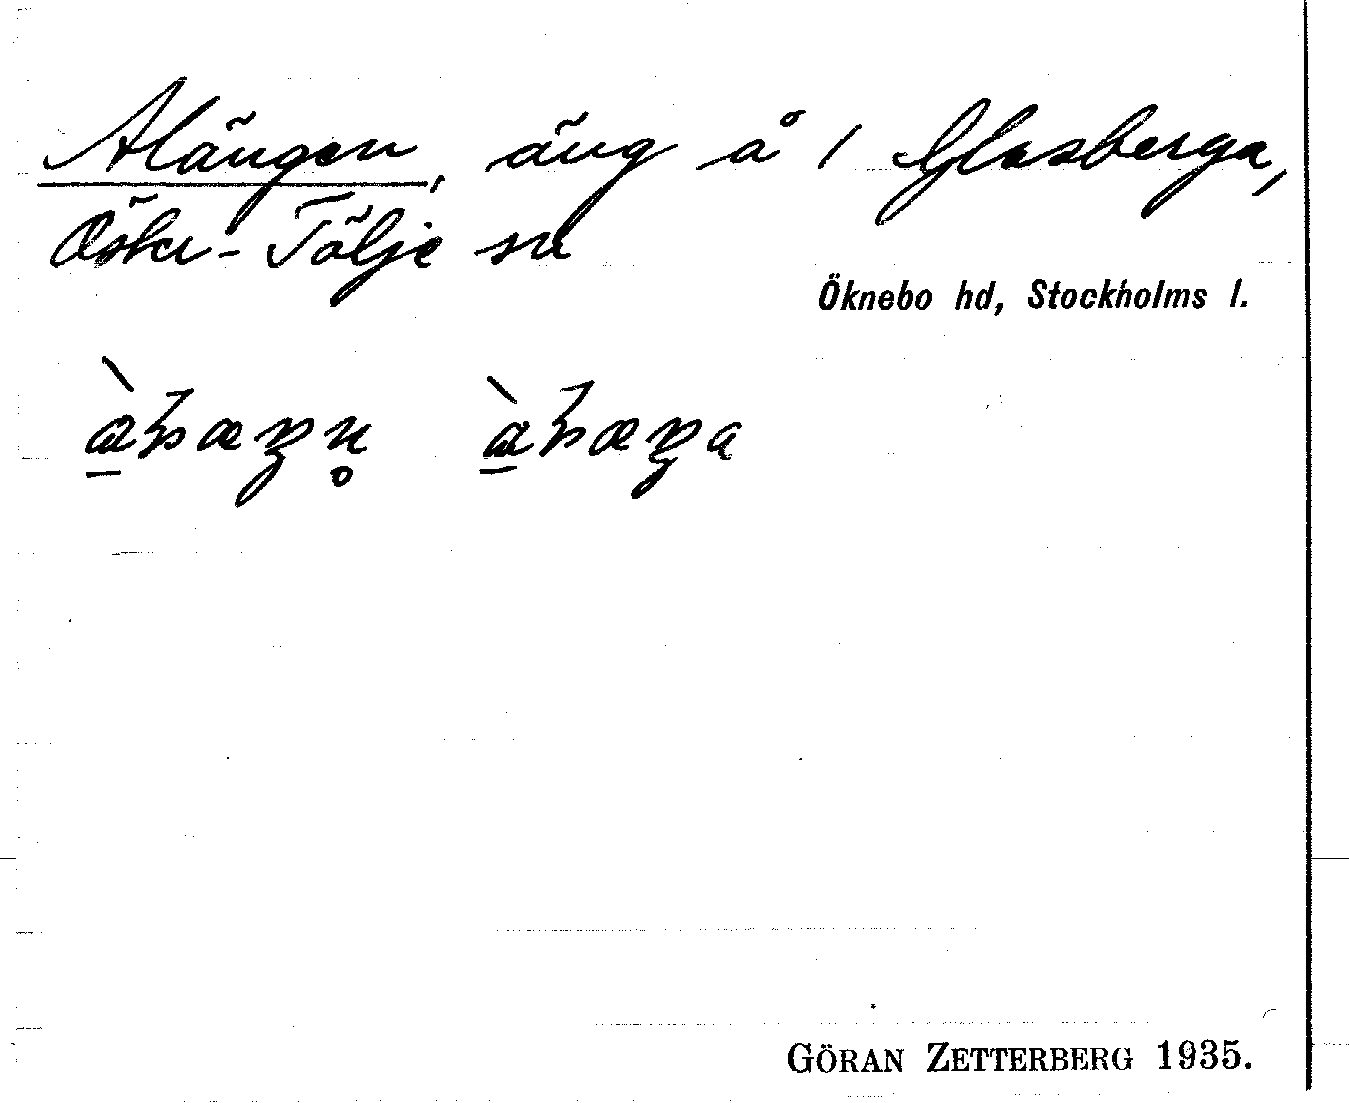 Alängen, äng å 1 Glasberga,
Öster-Tälje sn
Öknebo hd, Stockholms l.
GÖRAN ZETTERBERG 1935.